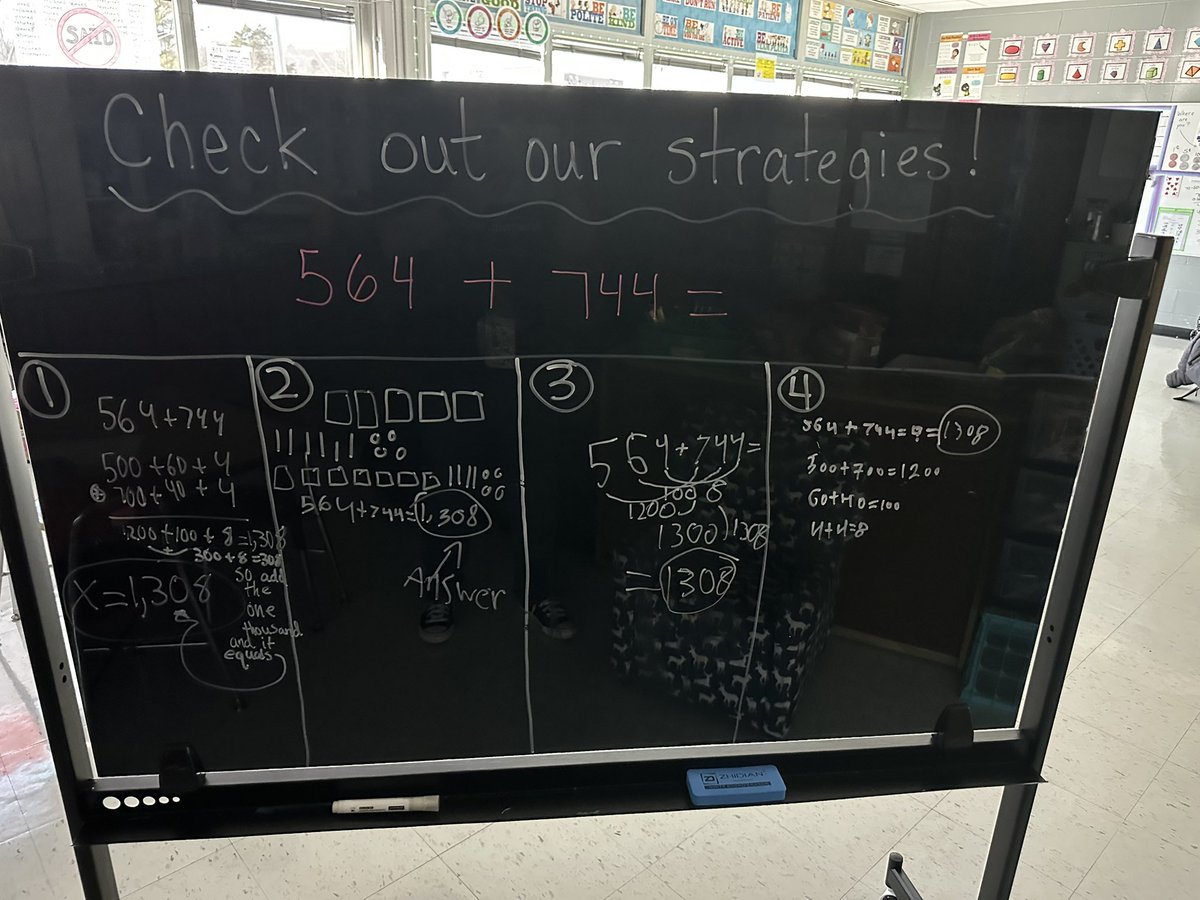 SAID
STOP
BE POLITE
BE KIND
Check out our strategies!
564 + 744 =
1
564+744
500+60+4
+ 700+40+4
1200+100+8=1,308
300+8=308
So, add
the
one
thousand
and it
equals
X=1,308
2
564+744=1,308
Answer
3
564+744=
1200 100 8
1300 1308
= 1308
4
564+744=?=1308
500+700=1200
60+40=100
4+4=8
ZHIDIAN